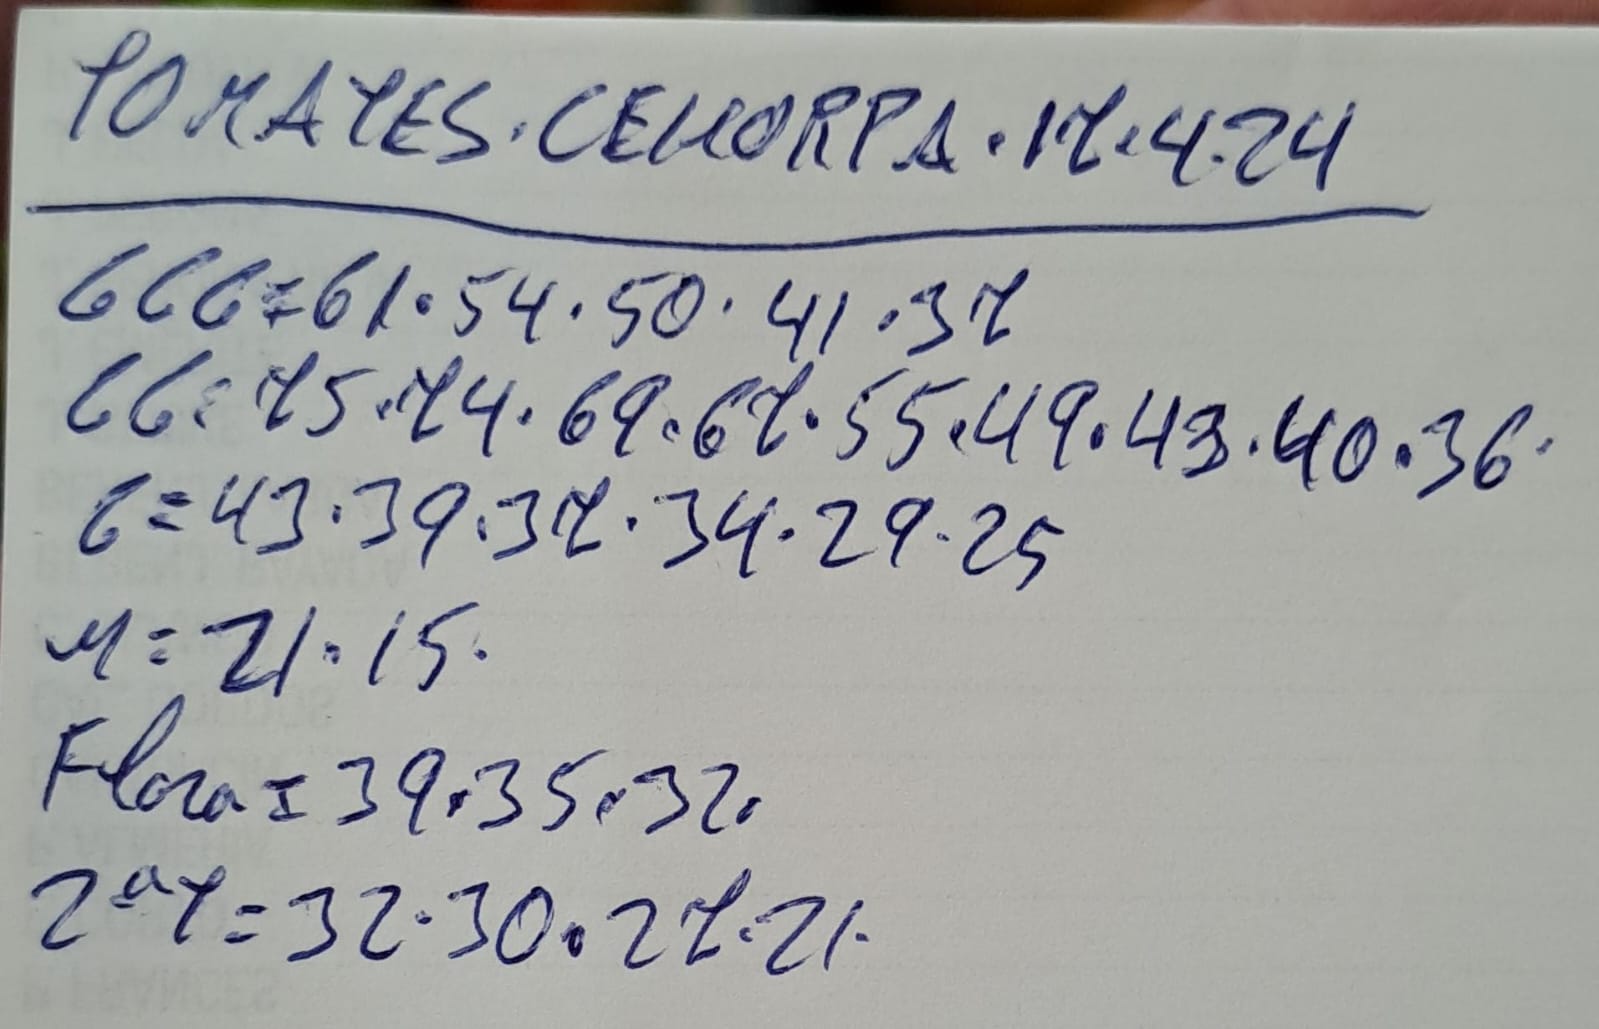 TOMATES.CEHORPA.17.4.24
GGG=61.54.50.41.37
GG=75.74.69.67.55.49.43.40.36.
G=43.39.37.34.29.25
M=21.15.
Flora=39.35.32.
2ªT=32.30.27.21.